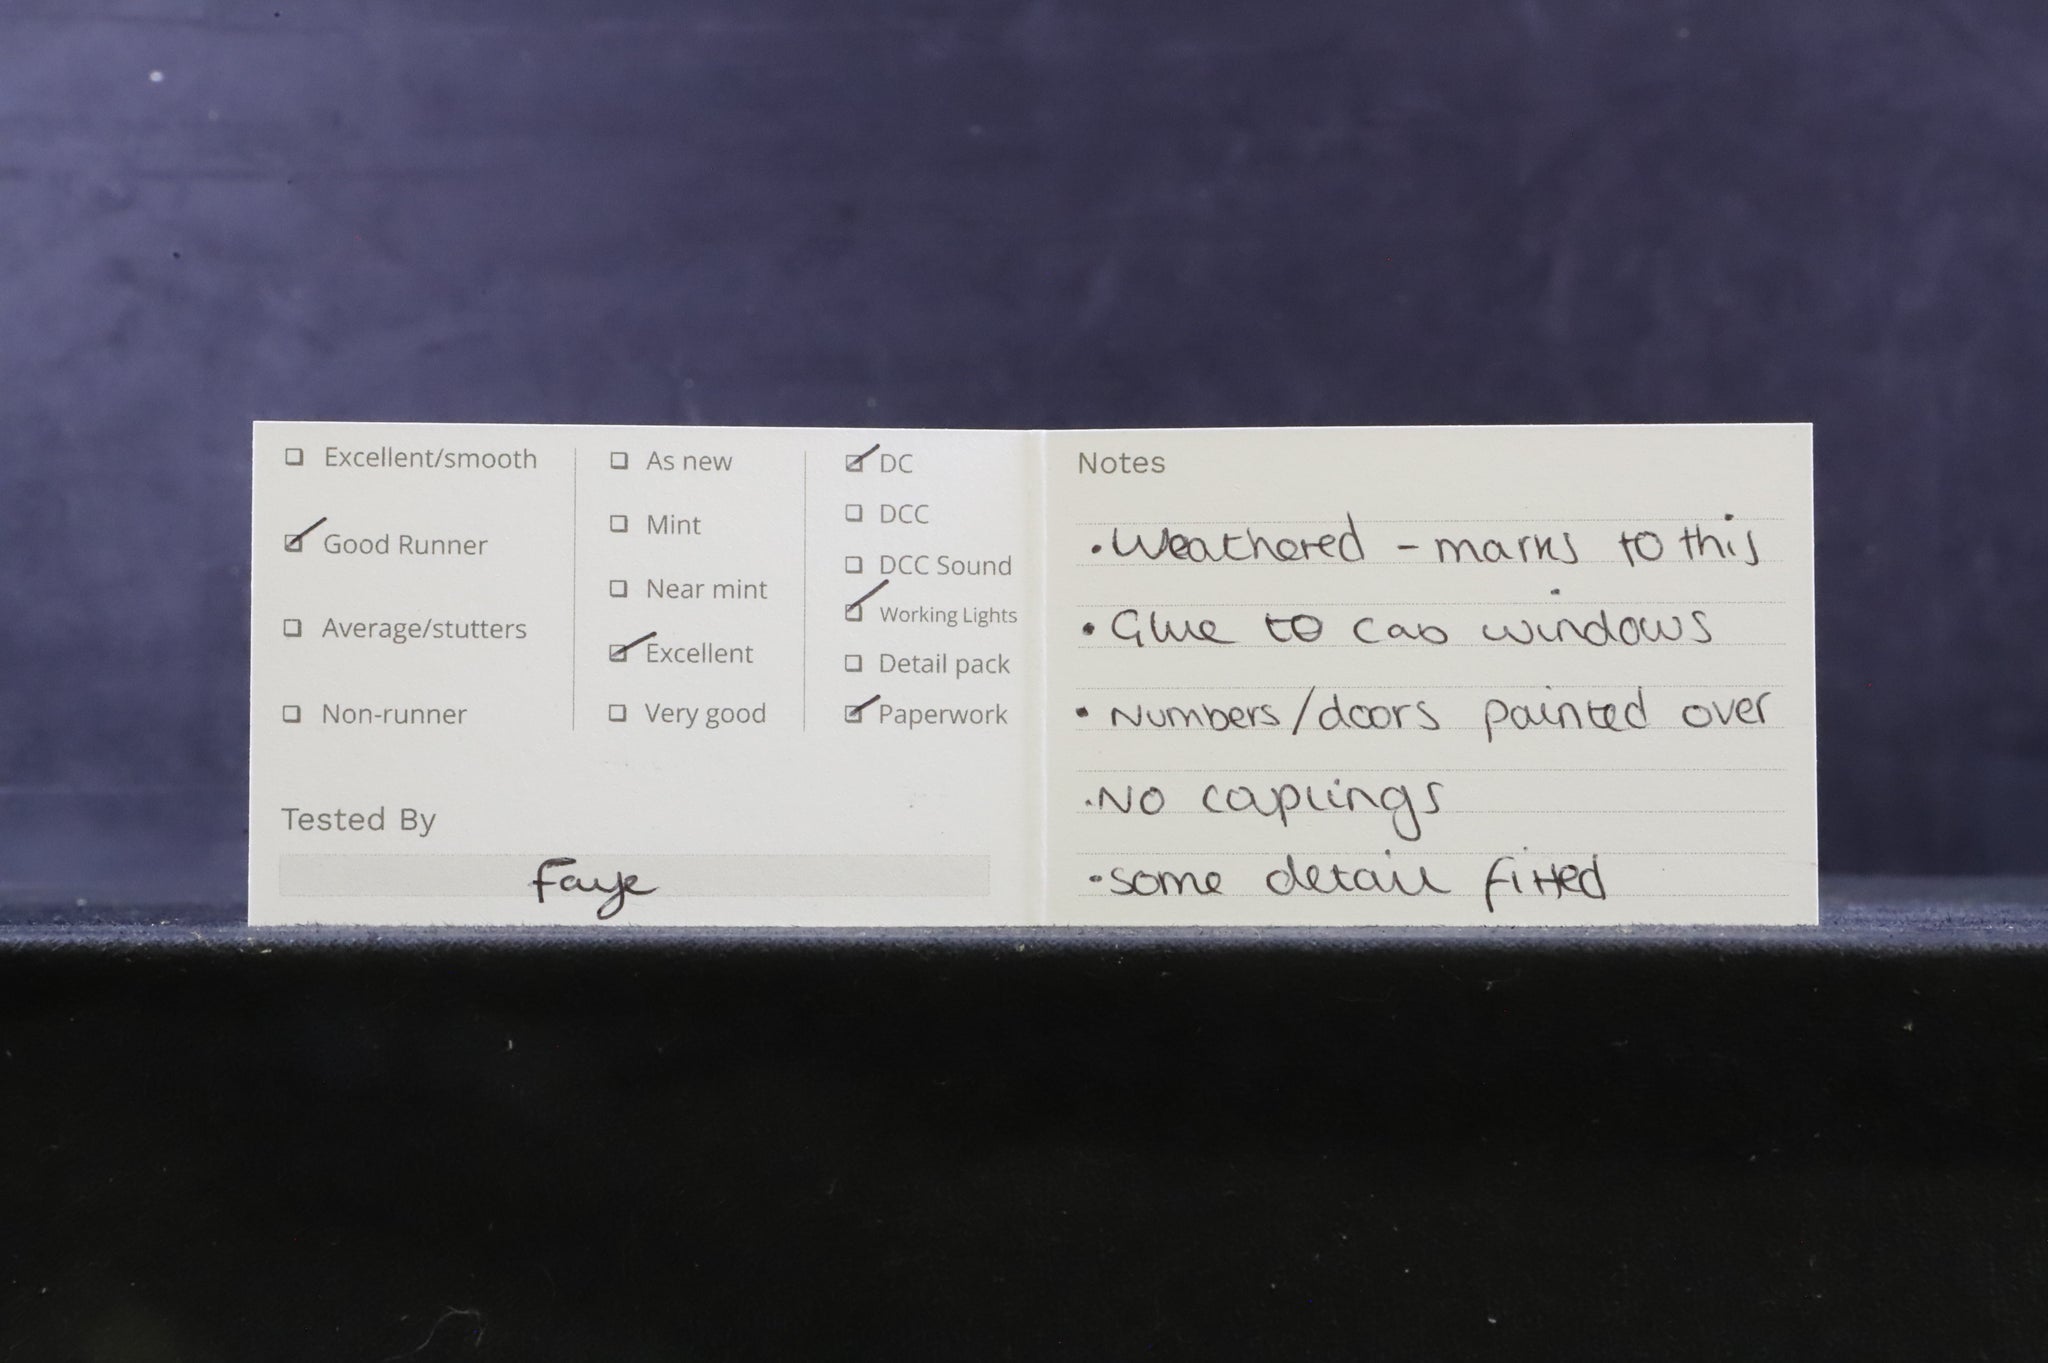 Excellent/smooth
Good Runner
Average/stutters
Non-runner
As new
Mint
Near mint
Excellent
Very good
DC
DCC
DCC Sound
Working Lights
Detail pack
Paperwork
Tested By
Faye
Notes
• Weathered - marks to this
• Glue to cab windows
• Numbers/doors painted over
• No coplings
• some detail fitted